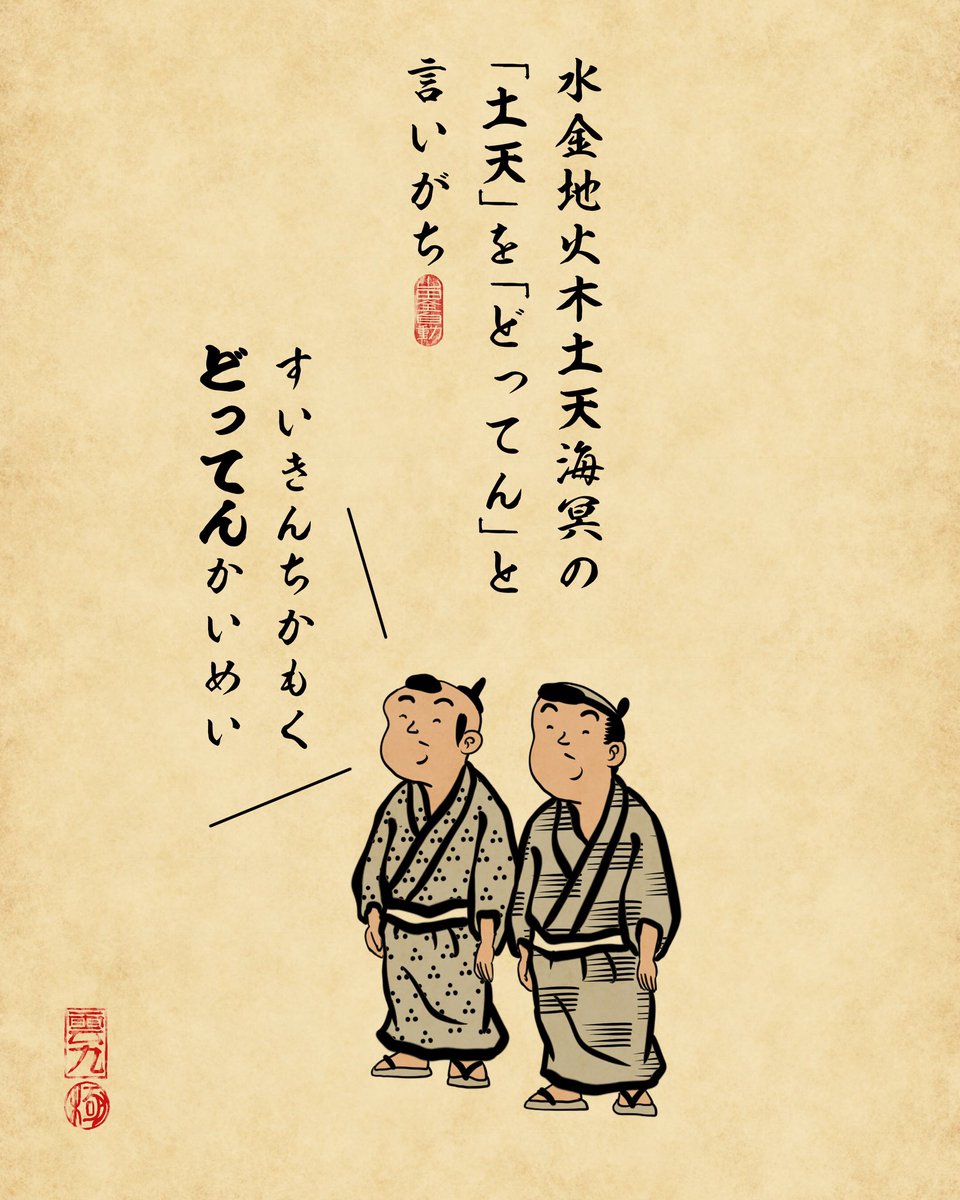 水金地火木土天海冥の
「土天」を「どってん」と
言いがち
すいきんちかもく
どってんかいめい